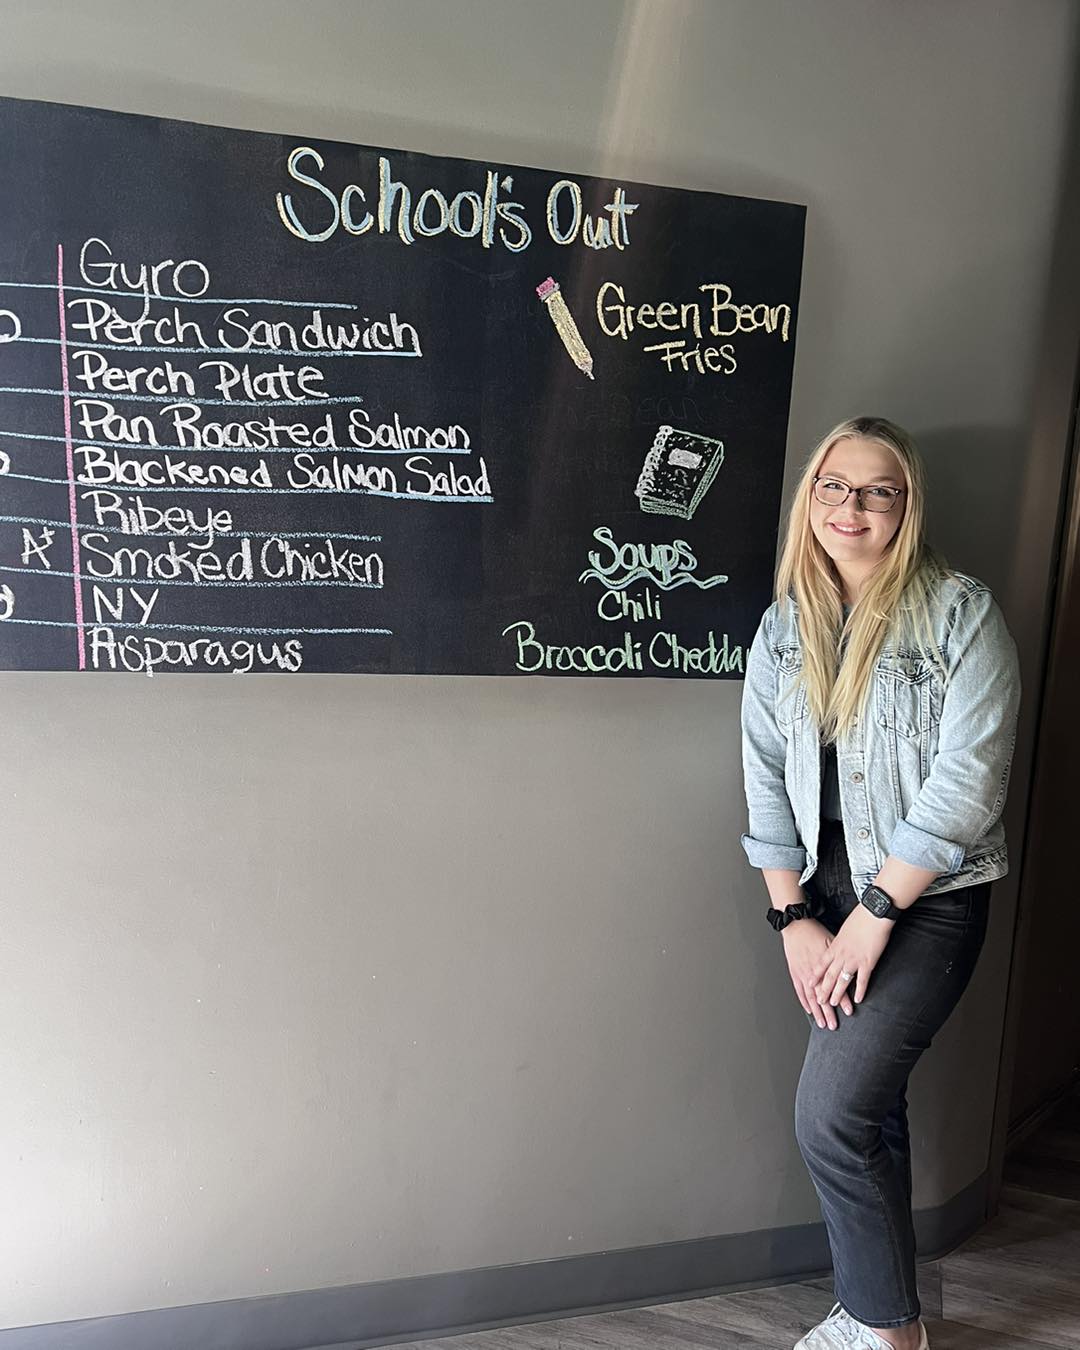 School's Out
Gyro
Perch Sandwich
Perch Plate
Pan Roasted Salmon
Blackened Salmon Salad
Ribeye
A+
Smoked Chicken
NY
Asparagus
Green Bean
Fries
Soups
Chili
Broccoli Chedda